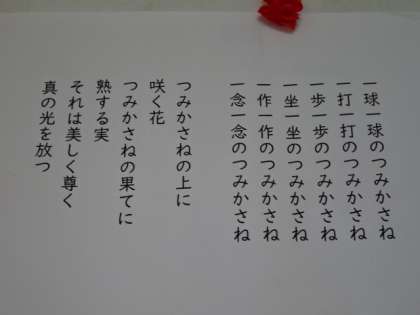 一球一球のつみかさね
一打一打のつみかさね
一歩一歩のつみかさね
一坐一坐のつみかさね
一作一作のつみかさね
一念一念のつみかさね
つみかさねの上に
咲く花
つみかさねの果てに
熟する実
それは美しく尊く
真の光を放つ